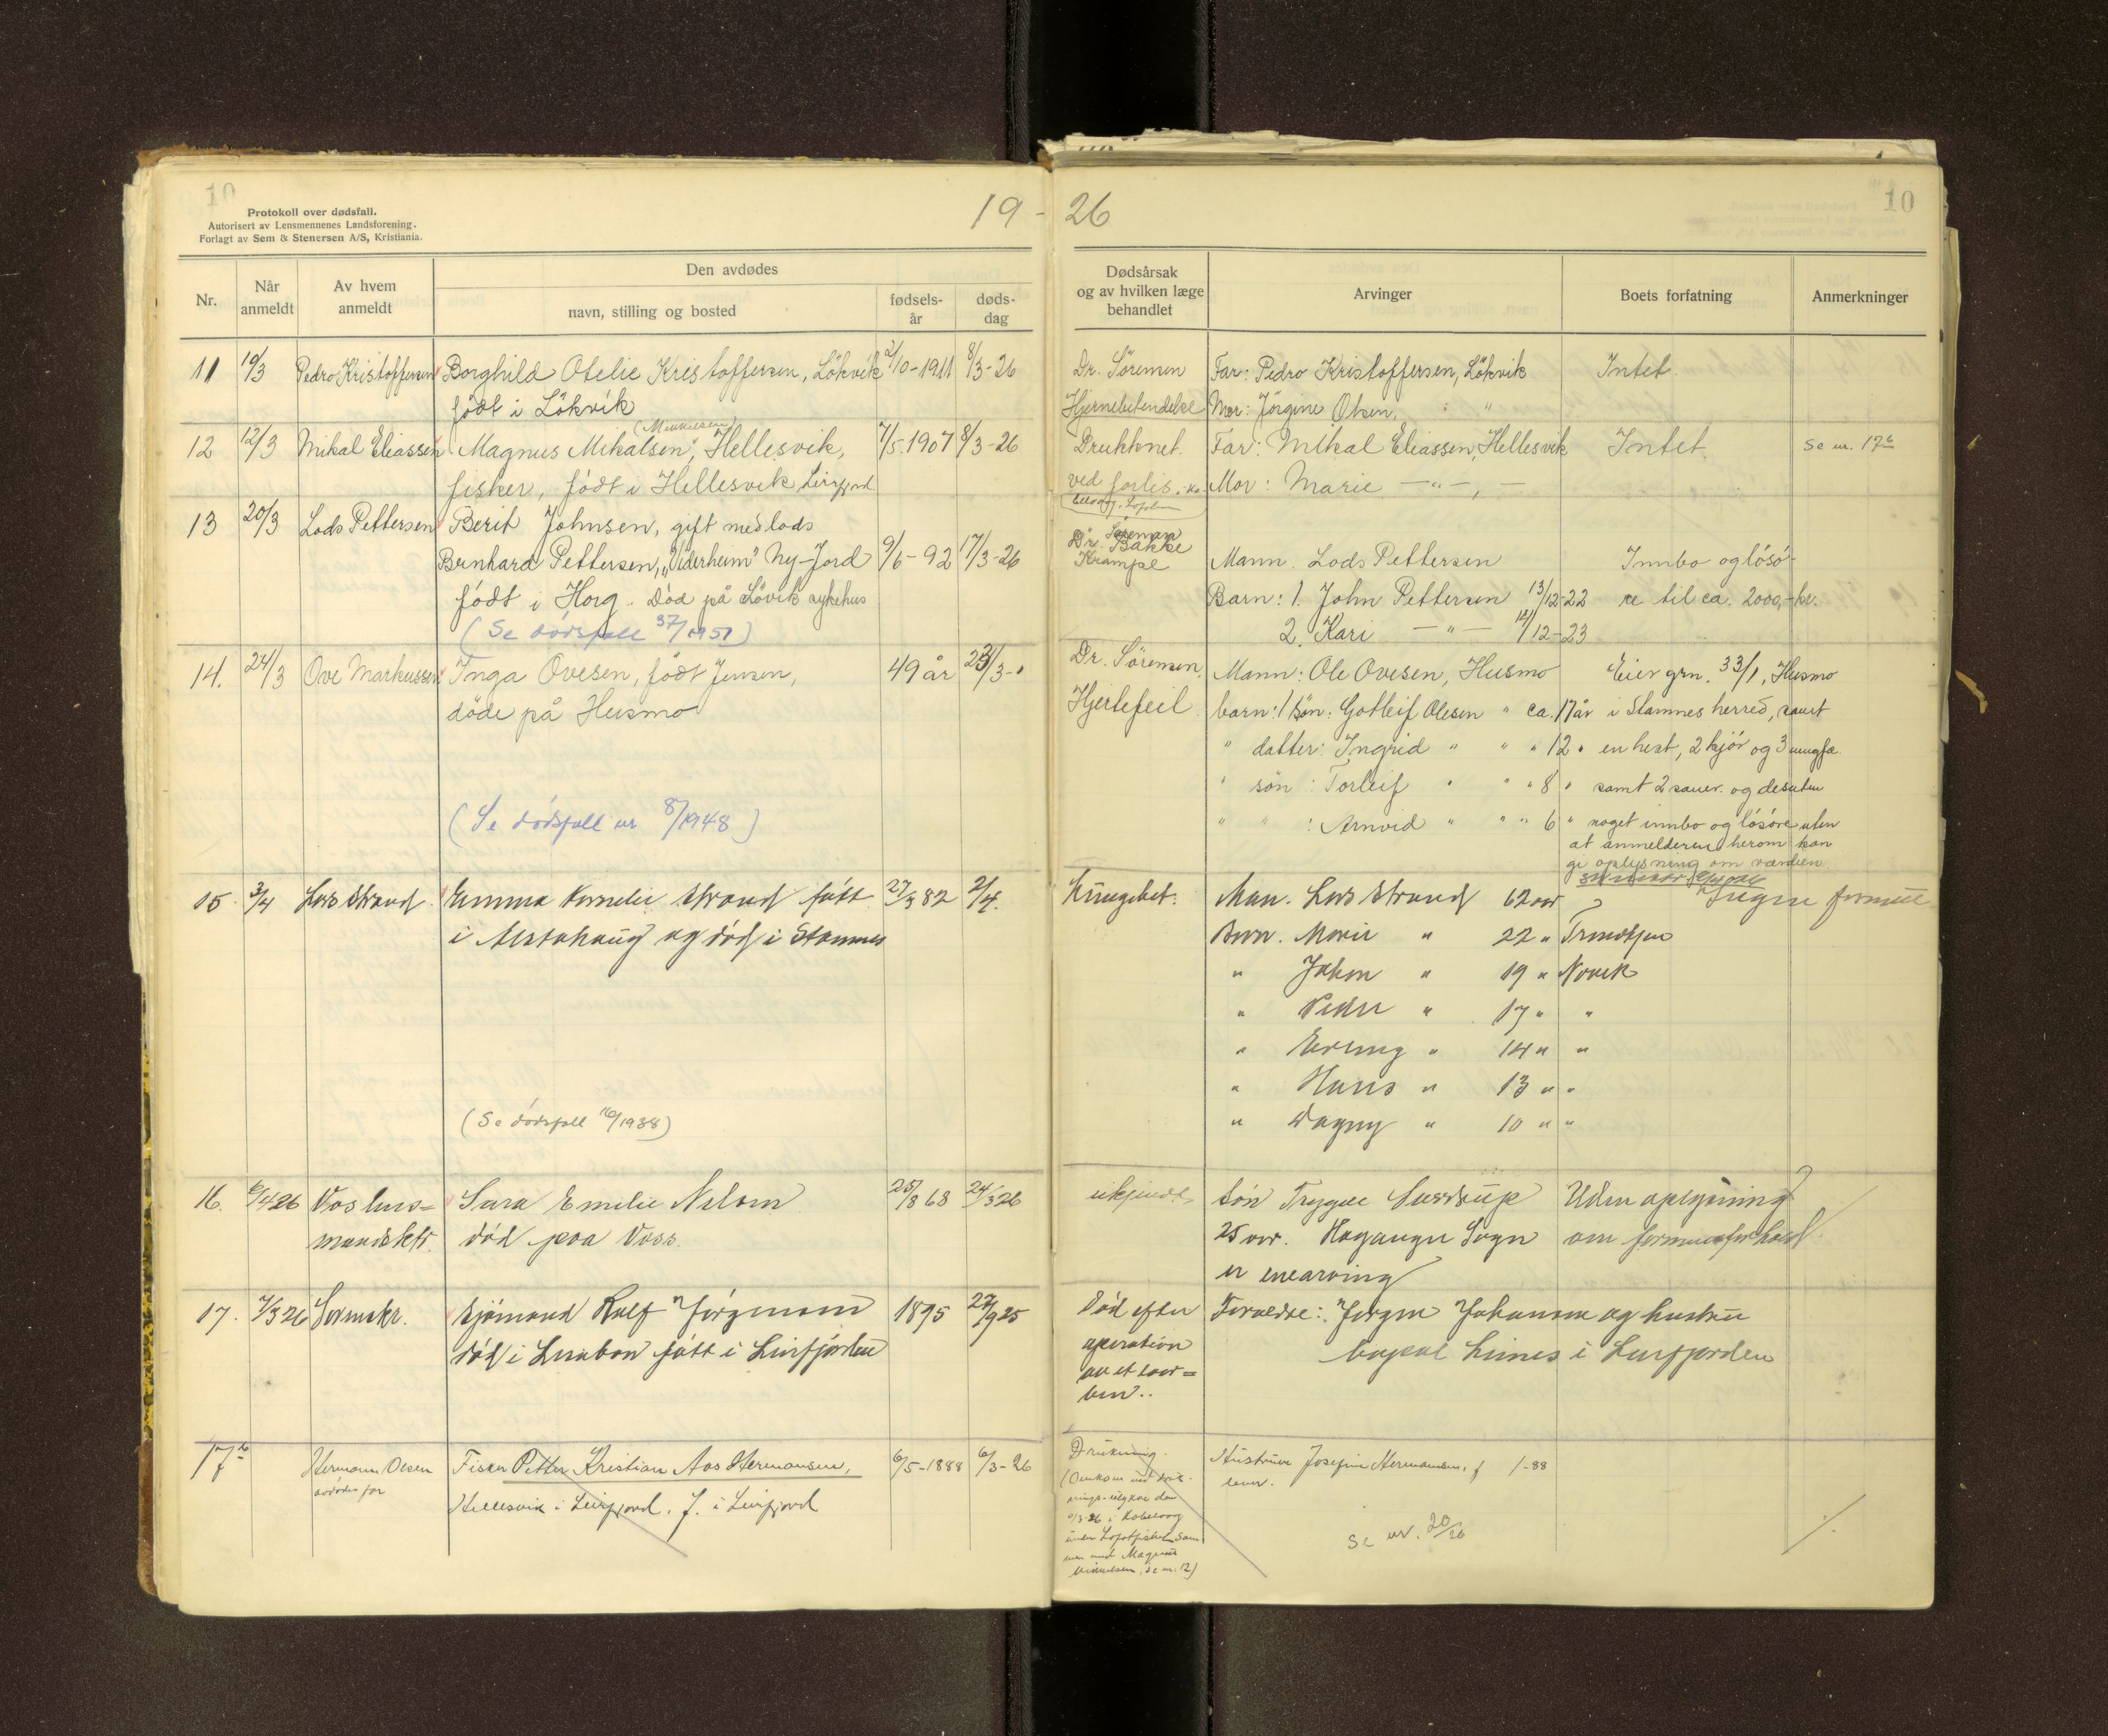 10
Protokoll over dødsfall.
Autorisert av Lensmennenes Landsforening.
Forlagt av Sem & Stenersen A/S, Kristiania.
19-
Nr.
Når anmeldt
Av hvem anmeldt
Den avdødes
navn, stilling og bosted
fødsels-år
døds-dag
11 10/3 Pedro Kristoffersen Borghild Otelie Kristoffersen, Lökvik 2/10-1911 8/3-26
födt i Lökvik
(Mikkelsen)
12 12/3 Mikal Eliassen Magnus Mikalsen, Hellesvik, 7/5-1907 8/3-26
fisker, födt i Hellesvik Leirfjord
13 20/3 Lods Pettersen Berit Johnsen, gift med lods
Bernhard Pettersen, "Viderheim" Ny-Jord 9/6-92 17/3-26
födt i Horg. Död på Lövik sykehus
(Se dödsfall 37/1951)
14. 24/3 Ove Markussen Inga Ovesen, födt Jensen, 49 år 23/3-"
döde på Husmo
(Se dödsfall nr 8/1948)
15 3/4 Lars Strand Emma Kornelie Strand fött 27/3 82 2/4.
i Alstahaug og död i Stamnes
(Se dödsfall 16/1938)
16. 6/4 26 Vos lens=
mandsktr.
Sara Emilie Nilsen 25/8 68 24/3 26
död paa Voss.
17. 7/3 26 Sormskr. Sjömand Rolf Jörgensen 1895 27/9 25
död i Lissabon fött i Leirfjorden
17a Hermann Olsen
avdödes far
Fisker Petter Kristian Aas Hermansen, 6/5-1888 6/3-26
Hellesvik i Leirfjord. f. i Leirfjord
26
10
Dødsårsak
og av hvilken læge
behandlet
Arvinger
Boets forfatning
Anmerkninger
Dr. Sörensen Far: Pedro Kristoffersen, Lökvik Intet.
Hjernebetendelse Mor: Jörgine Olsen, " "
Drukknet. Far: Mikal Eliassen, Hellesvik Intet. Se nr. 17a
ved forlis Mor: Marie -"-, -
Dr. Sörensen
Bakke
Krampe Mann. Lods Pettersen Innbo og lösö-
Barn: 1. John Pettersen 13/12-22 re til ca. 2000,- kr.
2. Kari -"- 12/12-23
Dr. Sörensen. Mann: Ole Ovesen, Husmo Eier grn. 33/1, Husmo
Hjertefeil barn: 1 sön: Gotleif Olesen " ca. 17 år i Stamnes herred, samt
" datter: Ingrid " " " 12 " en hest, 2 kjör og 3 ungfæ.
" sön: Torleif " " " 8 " samt 2 sauer. og desuten
" " : Arnvid " " " 6 " noget innbo og lösöre uten
at anmelderen herom kan
gi oplysning om værdien.
Man. Lars Strand 62 aar Ingen formue
Barn. Marie " 22 " Trondhjem
" Johan " 19 "
" Peder " 17 " "
" Erling " 14 " "
" Hans " 13 " "
" Dagny " 10 " "
ukjendt, Sön Trygve 25 aar. Sogn
er enearving
Uden oplysning
om formuesforhold
Död efter
operation
av et
Foreldre: Jørgen Johansen og hustru
bopæl Leines i Leirfjorden
Drukning.
(Omkom
under Lofotfisket sam
men med Magnus
Mikkelsen, se nr. 12)
Hustruen Josefine Hermansen, f /-88
lever.
Se nr. 20/26